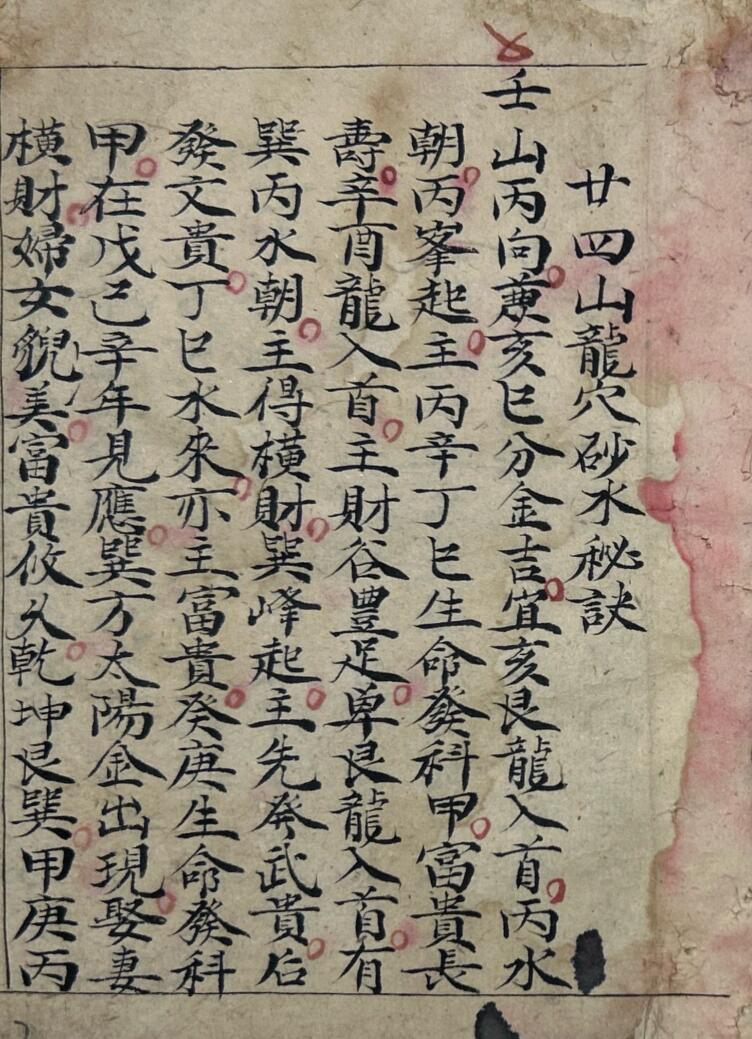 廿四山龍穴砂水秘訣
壬山丙向兼亥巳分金吉宜亥艮龍入首丙水
朝丙峯起主丙辛丁巳生命發科甲富貴長
壽辛酉龍入首主財谷豐足单艮龍入首有
巽丙水朝主得橫財巽峰起主先發武貴后
發文貴丁巳水來亦主富貴癸庚生命發科
甲在戊己辛年見應巽方太陽金出現娶妻
橫財婦女貌美富貴攸久乾坤艮巽甲庚丙